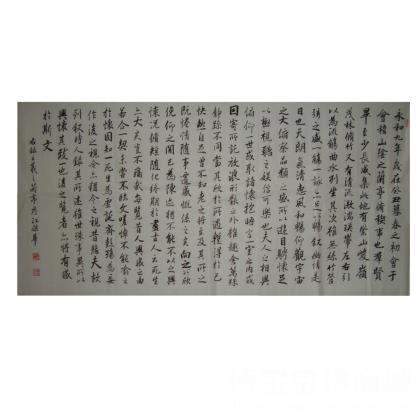 永和九年歲在癸丑暮春之初會于
會稽山陰之蘭亭脩稧事也羣賢
畢至少長咸集此地有崇山峻嶺
茂林脩竹又有清流激湍暎帶左右引
以為流觴曲水列坐其次雖無絲竹管
弦之盛一觴一詠亦足以暢敘幽情是
日也天朗氣清惠風和暢仰觀宇宙
之大俯察品類之盛所以遊目騁懷足
以極視聽之娛信可樂也夫人之相與
俯仰一世或取諸懷抱悟言一室之內或
因寄所託放浪形骸之外雖趣舍萬殊
靜躁不同當其欣於所遇暫得於己
快然自足曾不知老之將至及其所之
既惓情隨事遷感慨係之矣向之所欣
俛仰之間已為陳迹猶不能不以之興
懷況脩短隨化終期於盡古人云死生
亦大矣豈不痛哉每覽昔人興感之由
若合一契未嘗不臨文嗟悼不能喻之
於懷固知一死生為虛誕齊彭殤為妄
作後之視今亦猶今之視昔悲夫故
列敘時人錄其所述雖世殊事異所以
興懷其致一也後之覽者亦將有感
於斯文
右錄王羲之蘭亭序